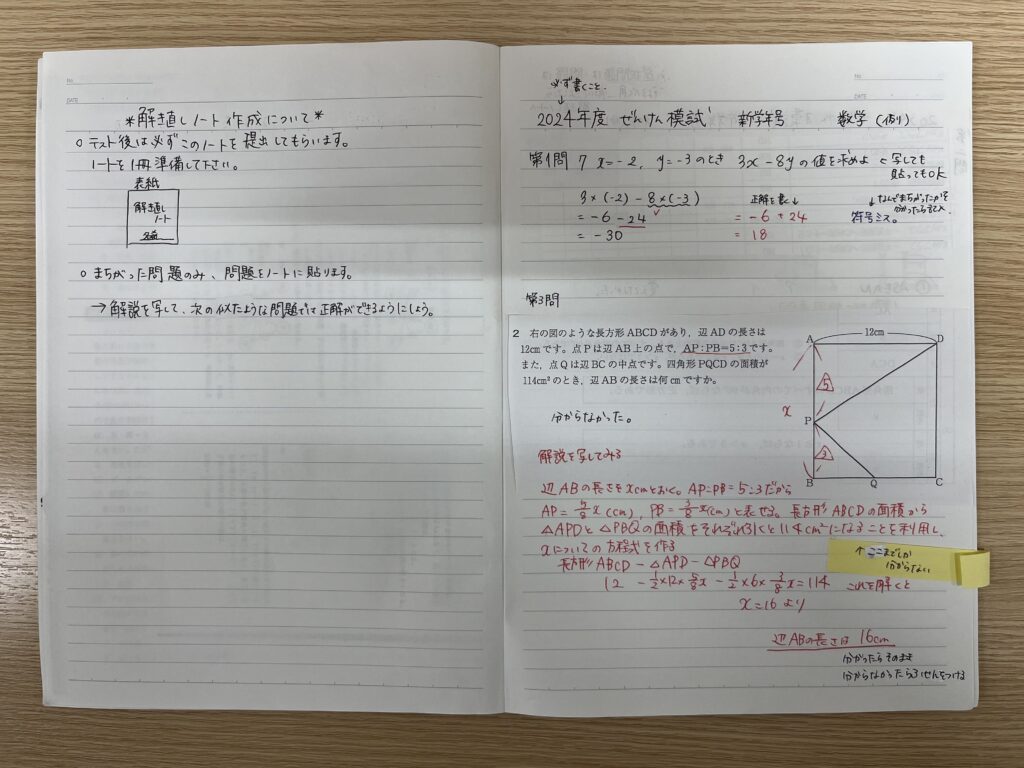 No.
DATE
*解き直しノート作成について*
○ テスト後は必ずこのノートを提出してもらいます。
ノートを1冊準備して下さい。
表紙
解き直し
ノート
名前
○ まちがった問題のみ、問題をノートに貼ります。
→ 解説を写して、次の似たような問題では正解ができるようにしよう。
No.
DATE
必ず書くこと
↓
2024年度 ぜんけん模試 新学年号 数学
第1問 7 x=-2, y=-3のとき 3x-8yの値を求めよ ←写しても
貼ってもOK
3×(-2)-8×(-3)
=-6-24
=-30
正解を書く↓
=-6+24
=18
↓なんでまちがったかを
分かったら書て入
符号ミス。
第3問
2 右の図のような長方形ABCDがあり、辺ADの長さは
12cmです。点Pは辺AB上の点で、AP:PB=5:3です。
また、点Qは辺BCの中点です。四角形PQCDの面積が
114cm²のとき、辺ABの長さは何cmですか。
12cm
A
D
5
x
P
3
B
Q
C
分からなかった。
解説を写してみる
辺ABの長さをxcmとおく。AP:PB=5:3だから
AP=5/8x(cm), PB=3/8x(cm)と表せる。長方形ABCDの面積から
△APDと△PBQの面積をそれぞれひくと114cm²になることを利用し、
xについての方程式を作る
長方形ABCD-△APD-△PBQ
↑ここまでしか
分からない
12 -1/2×12×5/8x-1/2×6×3/8x=114 これを解くと
x=16より
辺ABの長さは 16cm
分かったらそのまま
分からなかったらふせんをつける